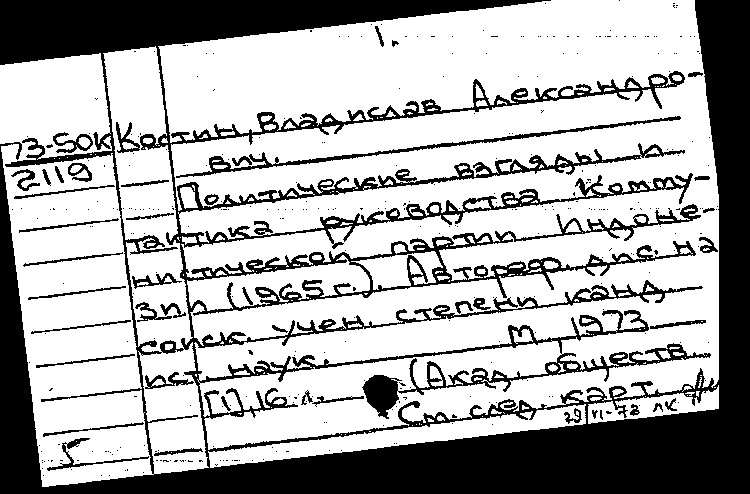 1.
73-50К Костин, Владислав Александро-
2119 вич.
Политические взгляды и
тактика руководства Комму-
нистической партии Индоне-
зии (1965 г.). Автореф. дис. на
соиск. учен. степени канд.
ист. наук. М, 1973
[1], 16 л. (Акад. обществ.
См. след. карт.
5 29/VI-73 ЛК